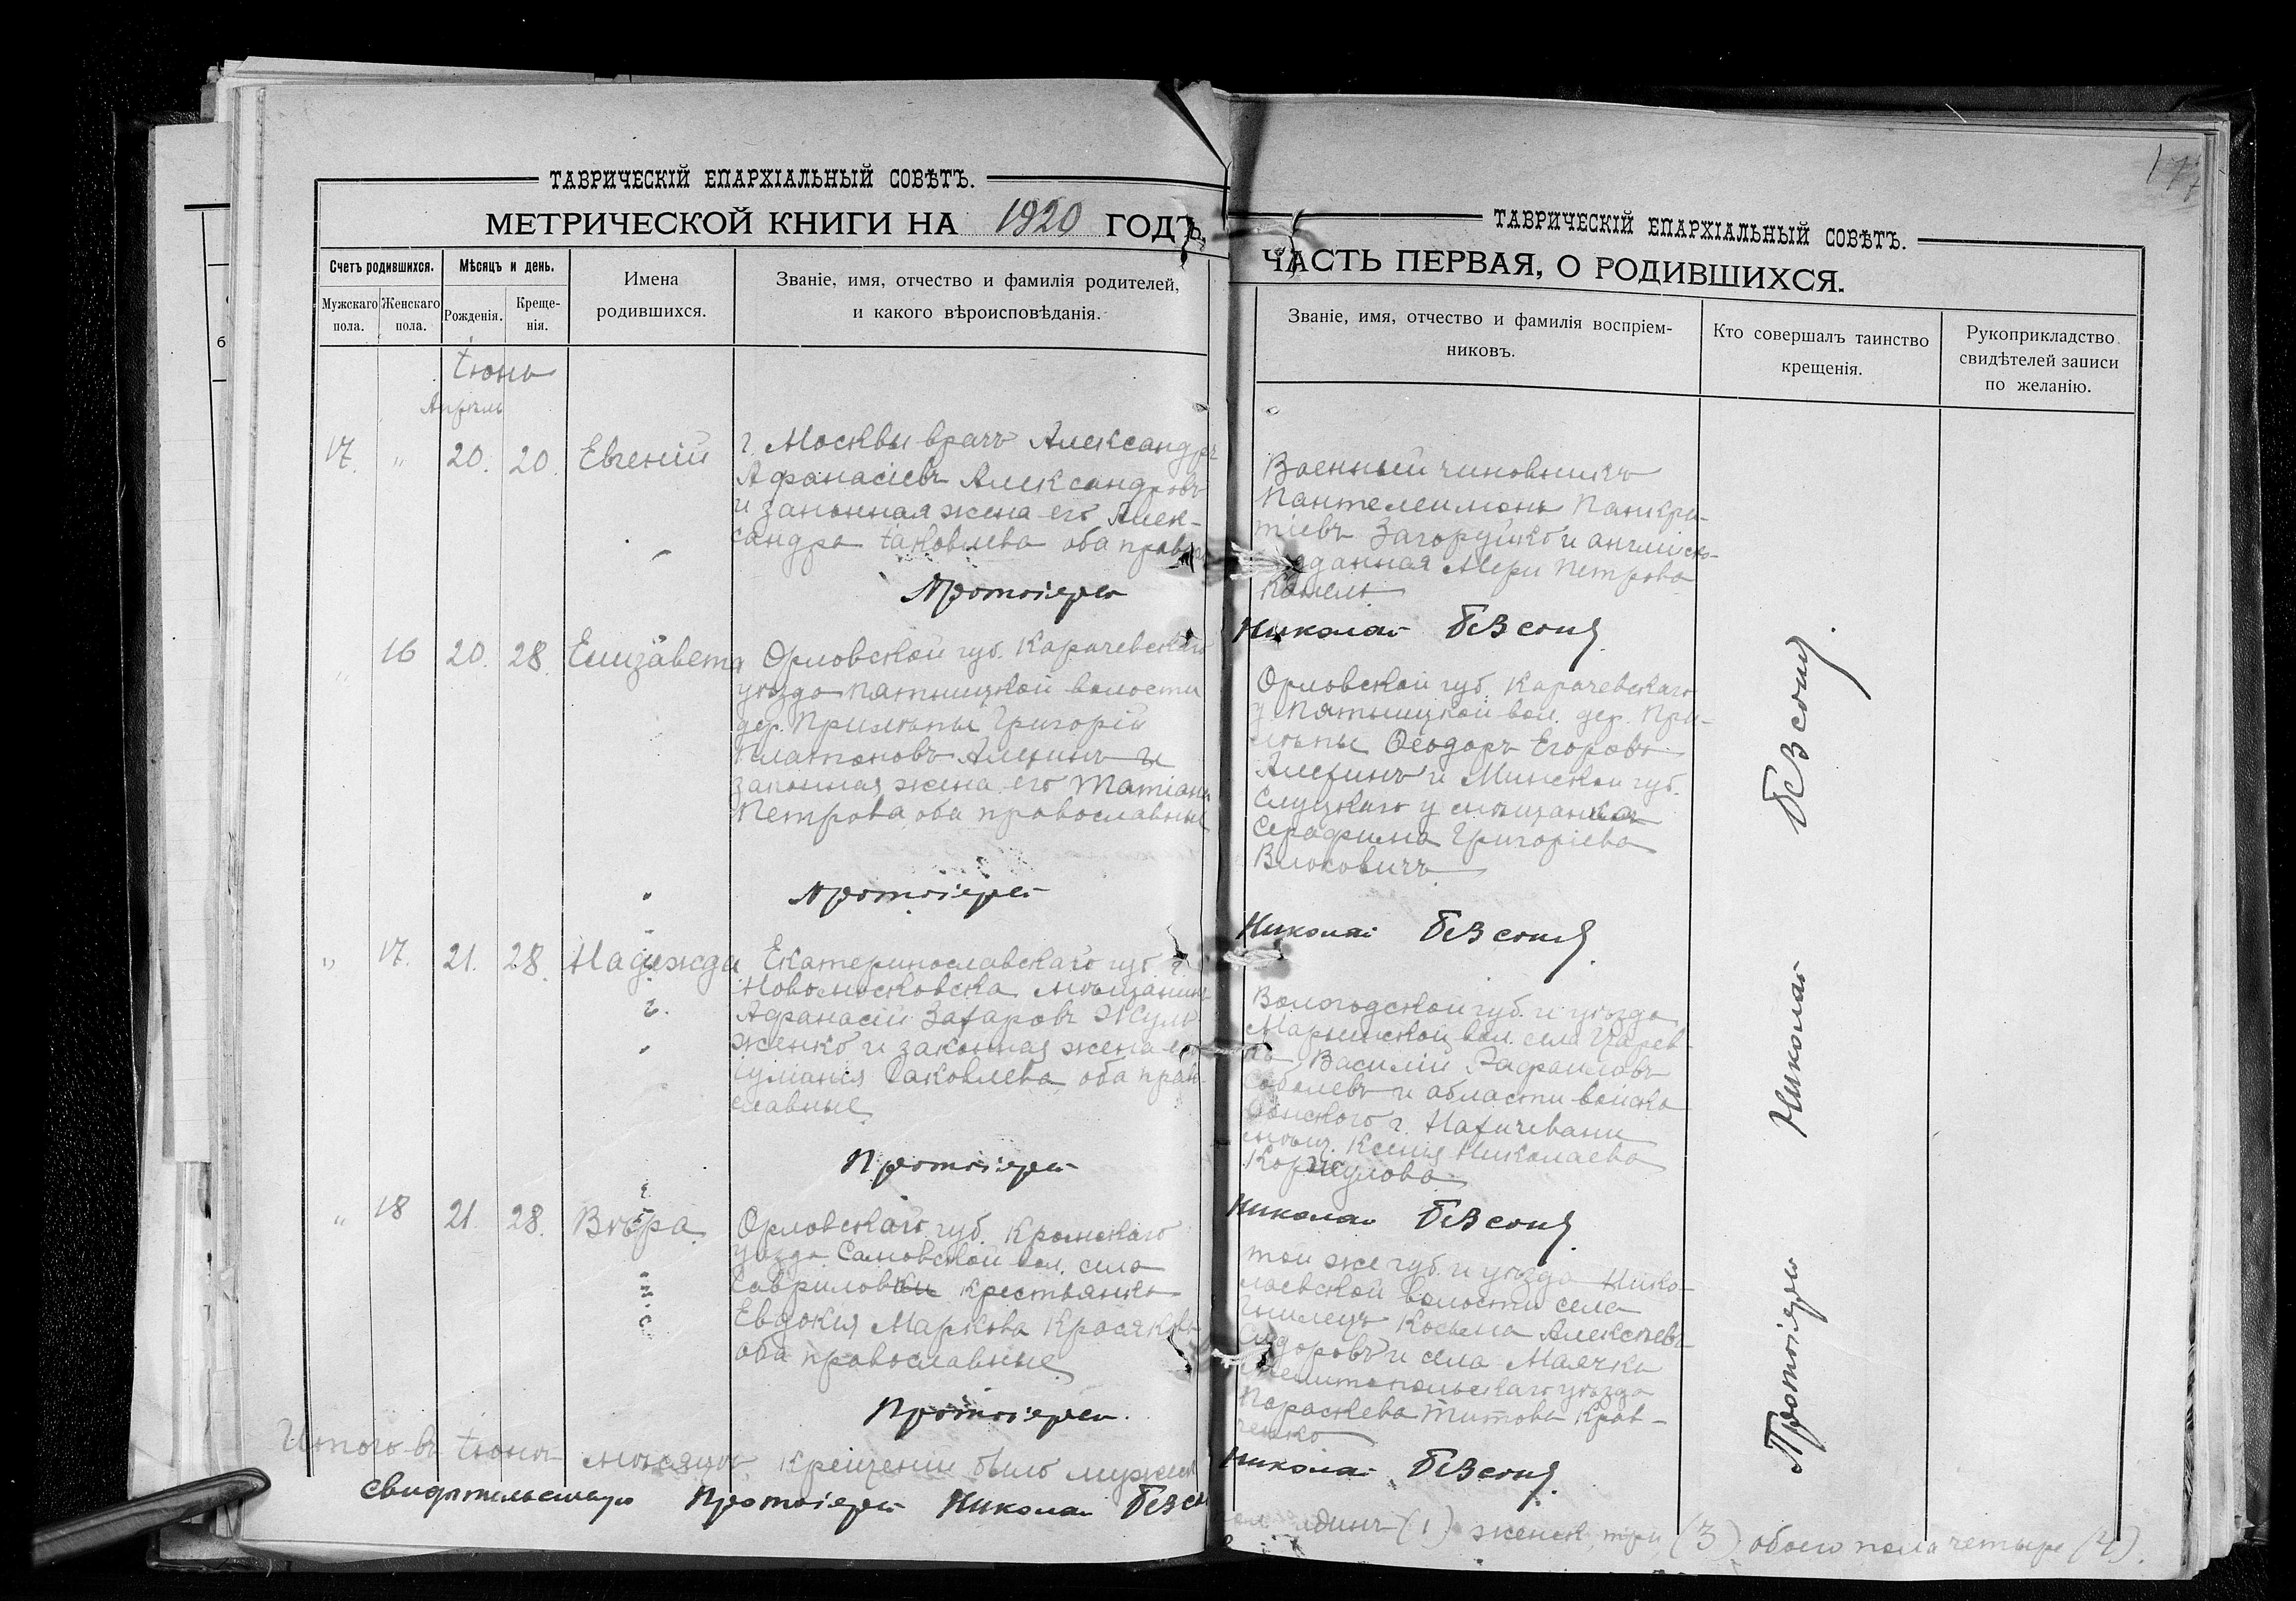 ТАВРИЧЕСКІЙ ЕПАРХІАЛЬНЫЙ СОВѢТЪ.
МЕТРИЧЕСКОЙ КНИГИ НА 1920 ГОДЪ,
Счетъ родившихся.
Мужскаго пола.
Женскаго пола.
Мѣсяцъ и день.
Рожденія.
Креще-
нія.
Имена
родившихся.
Званіе, имя, отчество и фамилія родителей,
и какого вѣроисповѣданія.
Іюнь
Апрѣль
17. „ 20. 20. Евгеній
г. Москвы врачъ Александръ
Афанасіевъ Александровъ
и законная жена его Алек-
сандра Іаковлева оба
Протоіерей
„ 16 20. 28. Елизавета
Орловской губ. Карачевскаго
уѣзда Пятницкой волости
дер. Прилѣпы Григорій
Платоновъ Алехинъ и
законная жена его Татіана
Петрова оба православные
Протоіерей
„ 17. 21. 28. Надежда
Екатеринославскаго губ. г.
Новомосковска мѣщанинъ
Афанасій Захаровъ
и законная жена его
Іуліанія Іаковлева оба право-
славные
Протоіерей
„ 18 21. 28. Вѣра
Орловскаго губ. Кромскаго
уѣзда вол. села
Гавриловки крестьянка
Евдокія Маркова
оба православные
Протоіерей
Итого въ Іюнѣ мѣсяцѣ крещеній было мужск
свидѣтельствую Протоіерей Николай
177
ТАВРИЧЕСКІЙ ЕПАРХІАЛЬНЫЙ СОВѢТЪ.
ЧАСТЬ ПЕРВАЯ, О РОДИВШИХСЯ.
Званіе, имя, отчество и фамилія воспріем-
никовъ.
Кто совершалъ таинство
крещенія.
Рукоприкладство
свидѣтелей записи
по желанію.
Военный чиновникъ
Пантелеимонъ Панкра-
тіевъ Загоруйко и англійско-
подданная Мери Петрова
Николай Безсоновъ
Орловской губ. Карачевскаго
у. Пятницкой вол. дер. При-
лѣпы Ѳеодоръ Егоровъ
Алехинъ и Минской губ.
Слуцкаго у мѣщанка
Серафима Григоріева
Николай Безсоновъ
Вологодской губ. и уѣзда
вол. села Царев-
Василій Рафаиловъ
Соболевъ и области войска
Донского г. Нахичевани
мѣщ. Ксенія Николаева
Николай Безсоновъ
той же губ. и уѣзда Нико-
лаевской волости села
Гнилецъ Косьма Алексѣевъ
Сидоровъ и села Маячка
Мелитопольскаго уѣзда
Параскева Титова Крав-
ченко
Николай Безсоновъ
Протоіерей Николай Безсоновъ
одинъ (1) женск. три (3) обоего пола четыре (4).